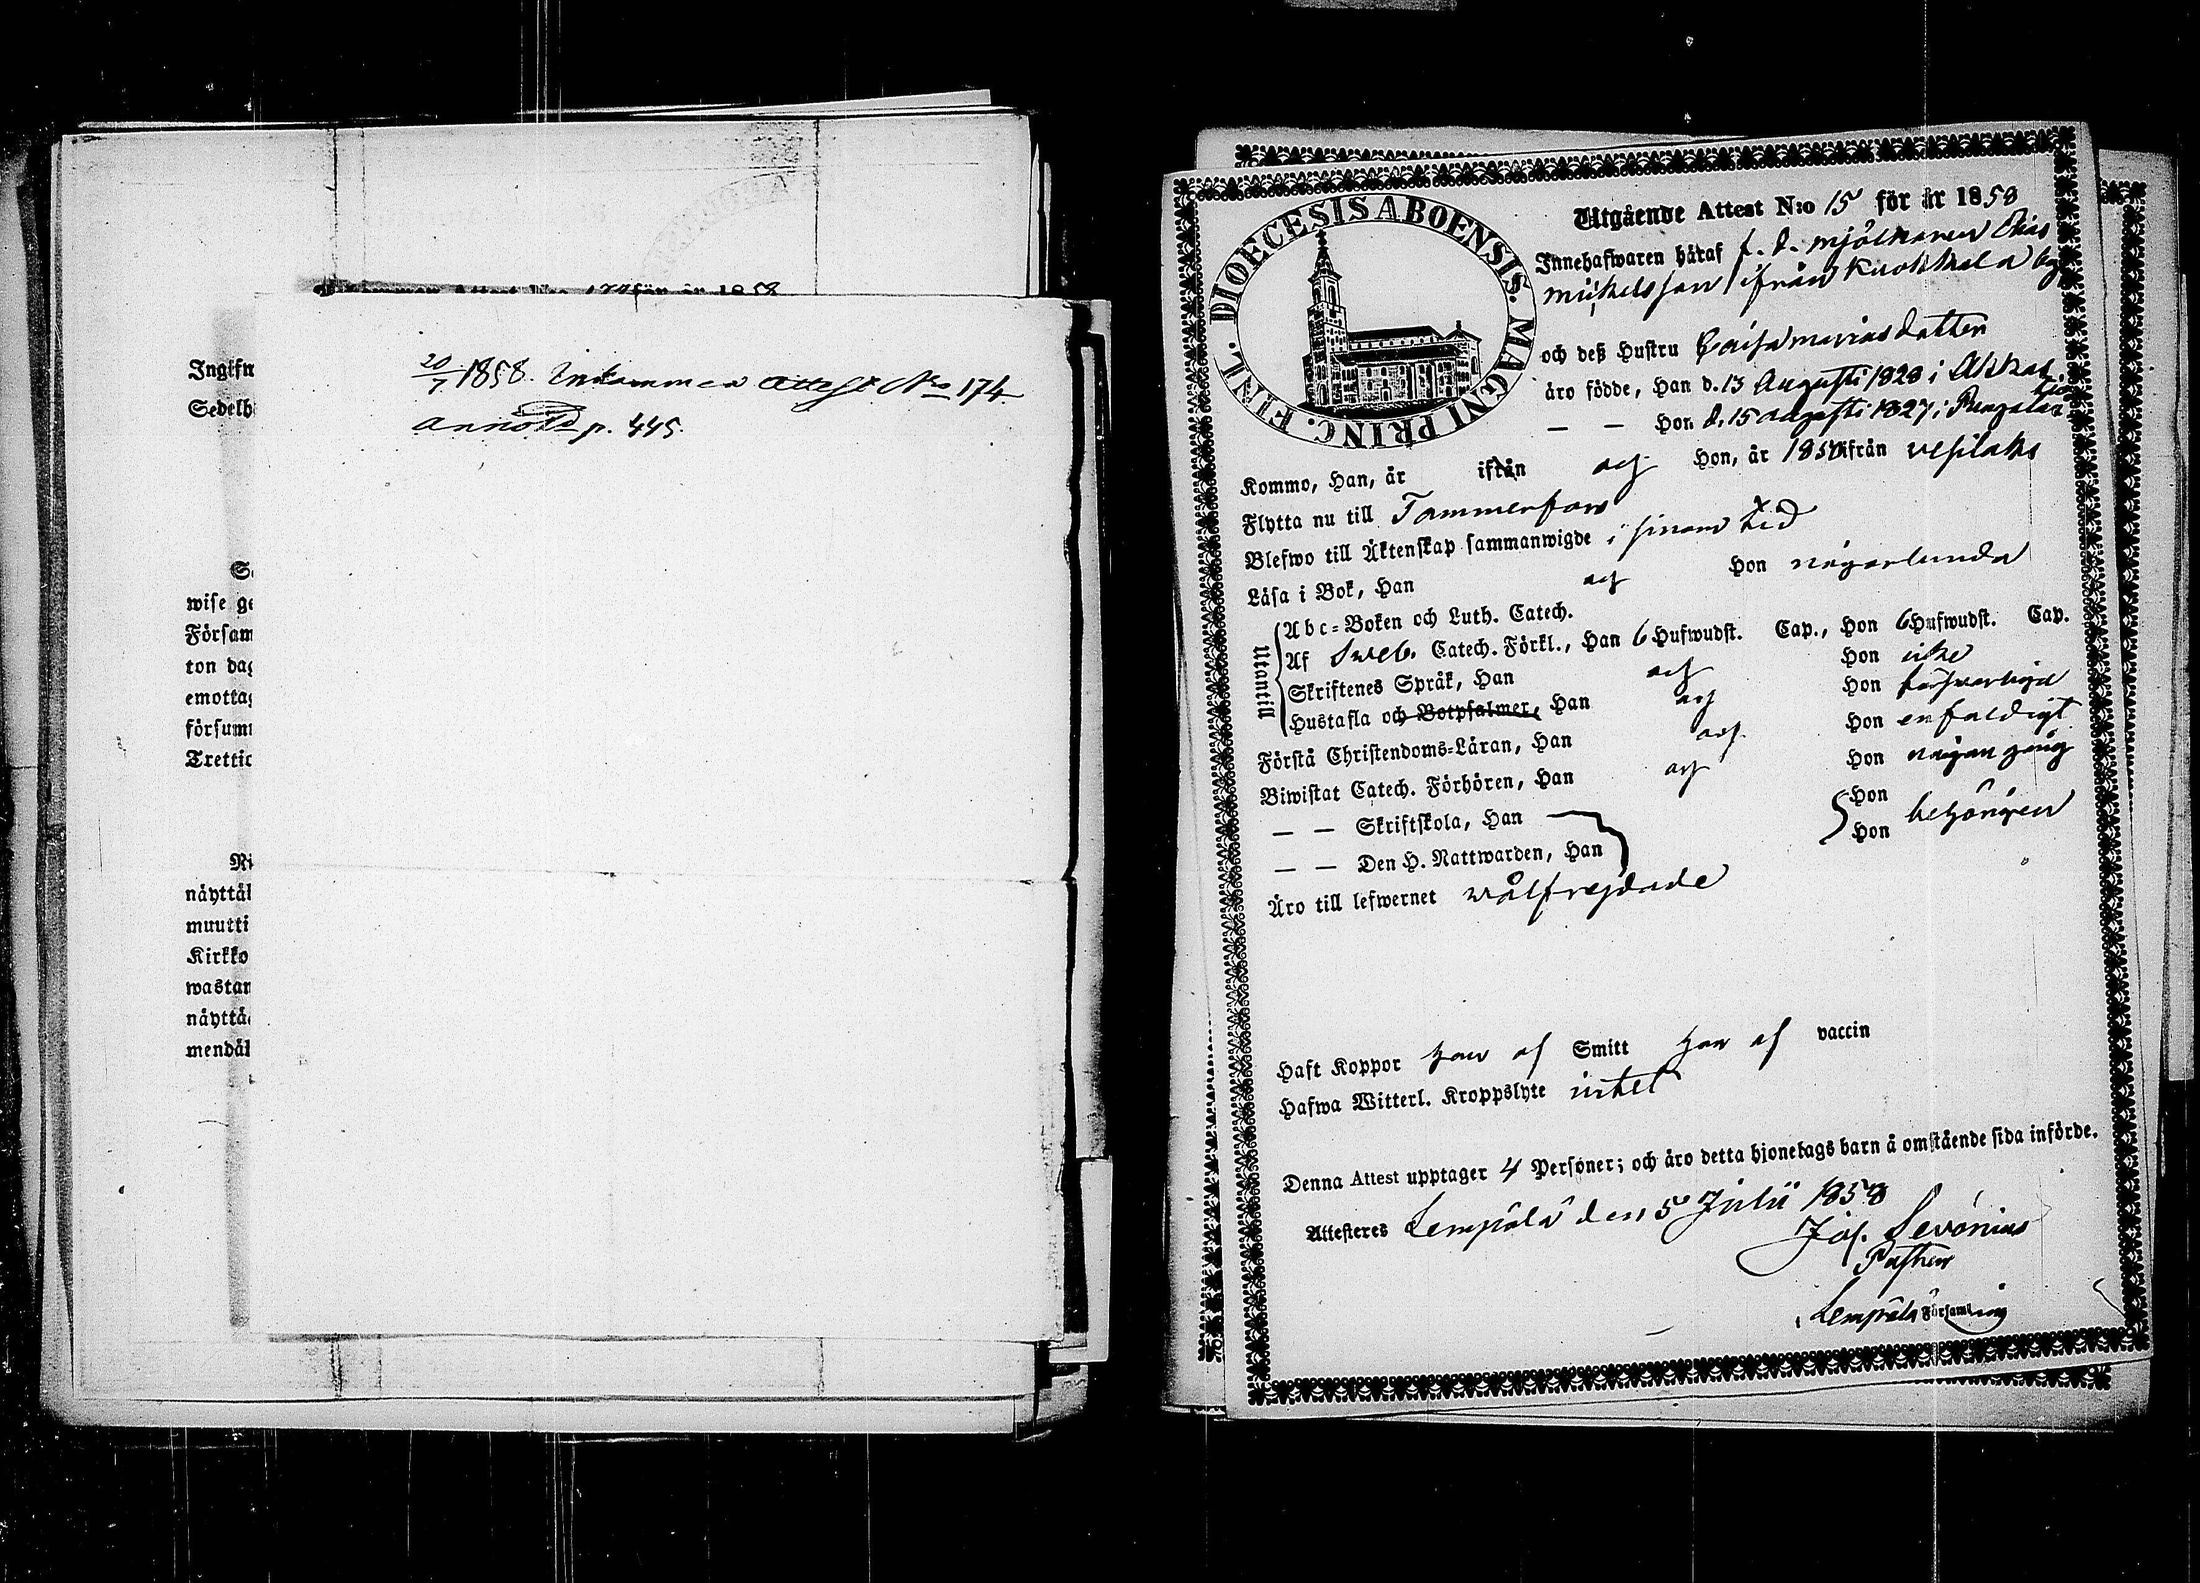 Inkommen Attest N:o 174 för år 1858
Ingifn
Sedelh
20/7 1858. Inkommen attest No 174
annoterd p. 445.
wise ge
Försam
ton dag
emottag
försumm
Trettio
Ni
näyttäl
muutti
Kirkko
wastan
näyttä
mendäl
DIOECESIS ABOENSIS. MAGNI PRINC. FINL.
Utgående Attest N:o 15 för år 1858
Innehafwaren häraf f. d. mjölnaren Elias
Mickelsson ifrån Kuokkala by
och deß Hustru Caisa mariasdotter
äro födde, Han d. 13 Augusti 1828 i Akkas
— — Hon d. 15 augusti 1827 i
Kommo, Han, år ifrån och Hon, år 1850 ifrån vesilaks
Flytta nu till Tammerfors
Blefwo till Äktenskap sammanwigde i sinom tid
Läsa i Bok, Han och Hon någorlunda
Utantill
Abc-Boken och Luth. Catech.
Af Sveb. Catech. Förkl., Han 6 Hufwudst. Cap., Hon 6 Hufwudst. Cap.
Skriftenes Språk, Han och Hon icke
Hustafla och Botpsalmer, Han och Hon försvarligd
Förstå Christendoms-Läran, Han och Hon enfaldigt
Biwistat Catech. Förhören, Han och Hon någon gång
— — Skriftskola, Han — Hon
— — Den H. Nattwarden, Han Hon behörigen
Äro till lefwernet välfrejdade
Haft Koppor han af Smitt hon af vaccin
Hafwa Witterl. Kroppslyte intet
Denna Attest upptager 4 Personer; och äro detta hjonelags barn å omstående sida införde.
Attesteres Lempälä den 5 Julii 1858
Jos. Sevónius
Pastor
i Lempälä Församling